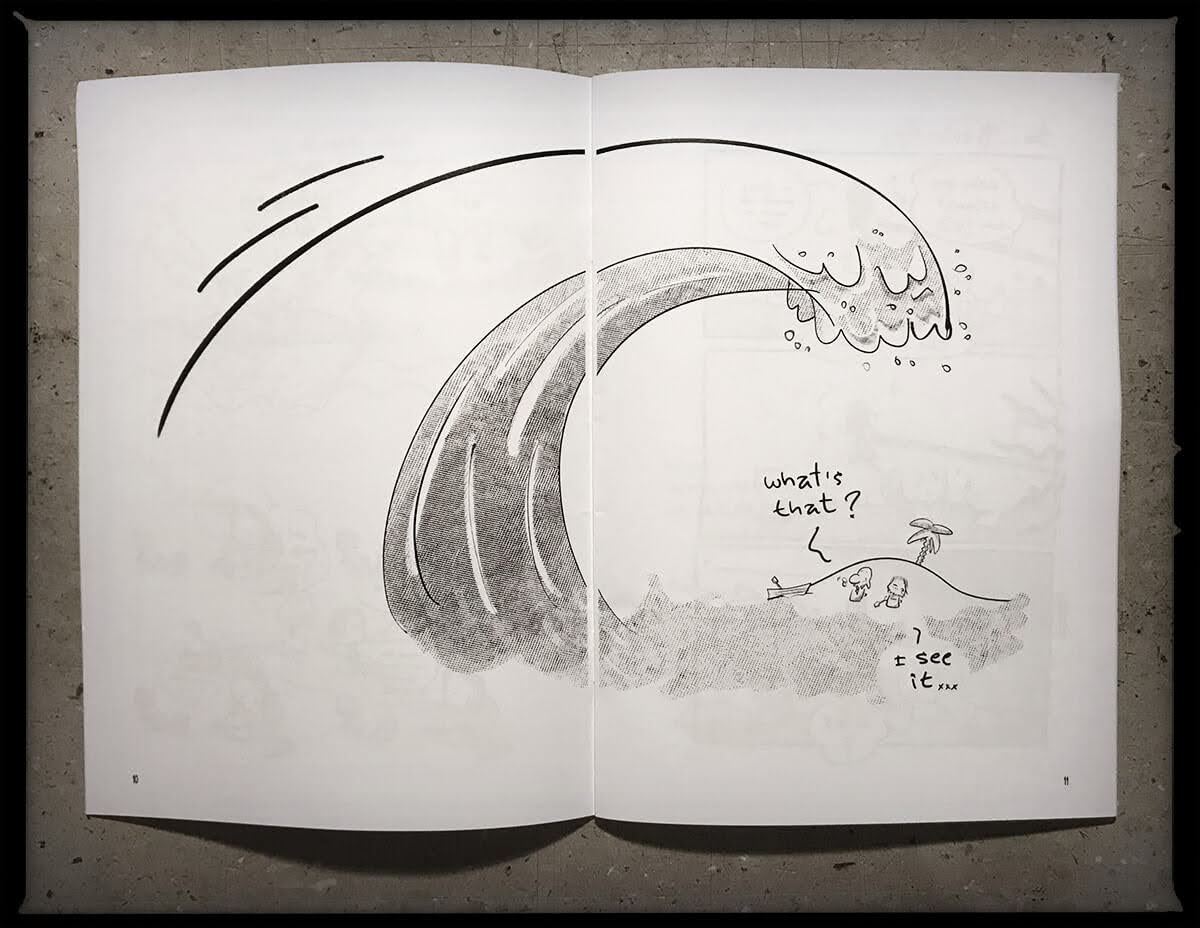 what's
that?
I see
it xxx
10
11